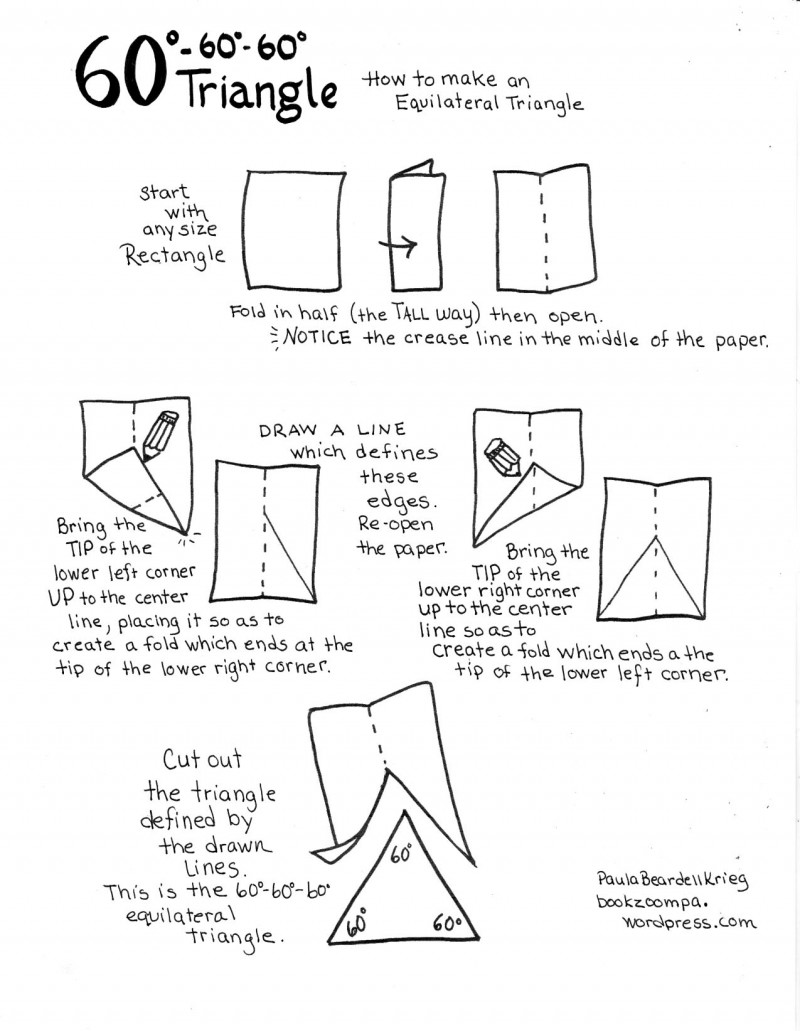 60°-60°-60°
Triangle
How to make an
Equilateral Triangle
Start
with
any size
Rectangle
Fold in half (the TALL way) then open.
NOTICE the crease line in the middle of the paper.
DRAW A LINE
which defines
these
edges.
Re-open
the paper.
Bring the
TIP of the
lower left corner
UP to the center
line, placing it so as to
create a fold which ends at the
tip of the lower right corner.
Bring the
TIP of the
lower right corner
up to the center
line so as to
create a fold which ends a the
tip of the lower left corner.
Cut out
the triangle
defined by
the drawn
Lines.
This is the 60°-60°-60°
equilateral
triangle.
60°
60°
60°
Paula Beardell Krieg
bookzoompa.
wordpress.com